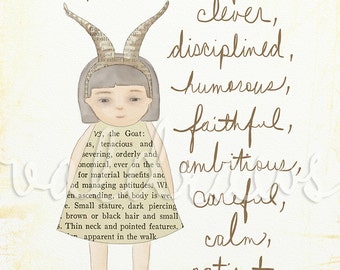 clever,
disciplined,
humorous,
faithful,
ambitious,
careful,
calm,
patient
the Goat:
tenacious and
severing, orderly and
onomical, ever on the a
for material benefits and
and managing aptitudes. Wi
en ascending, the body is w
ed. Small stature, dark piercing
brown or black hair and small
s. Thin neck and pointed features.
apparent in the walk